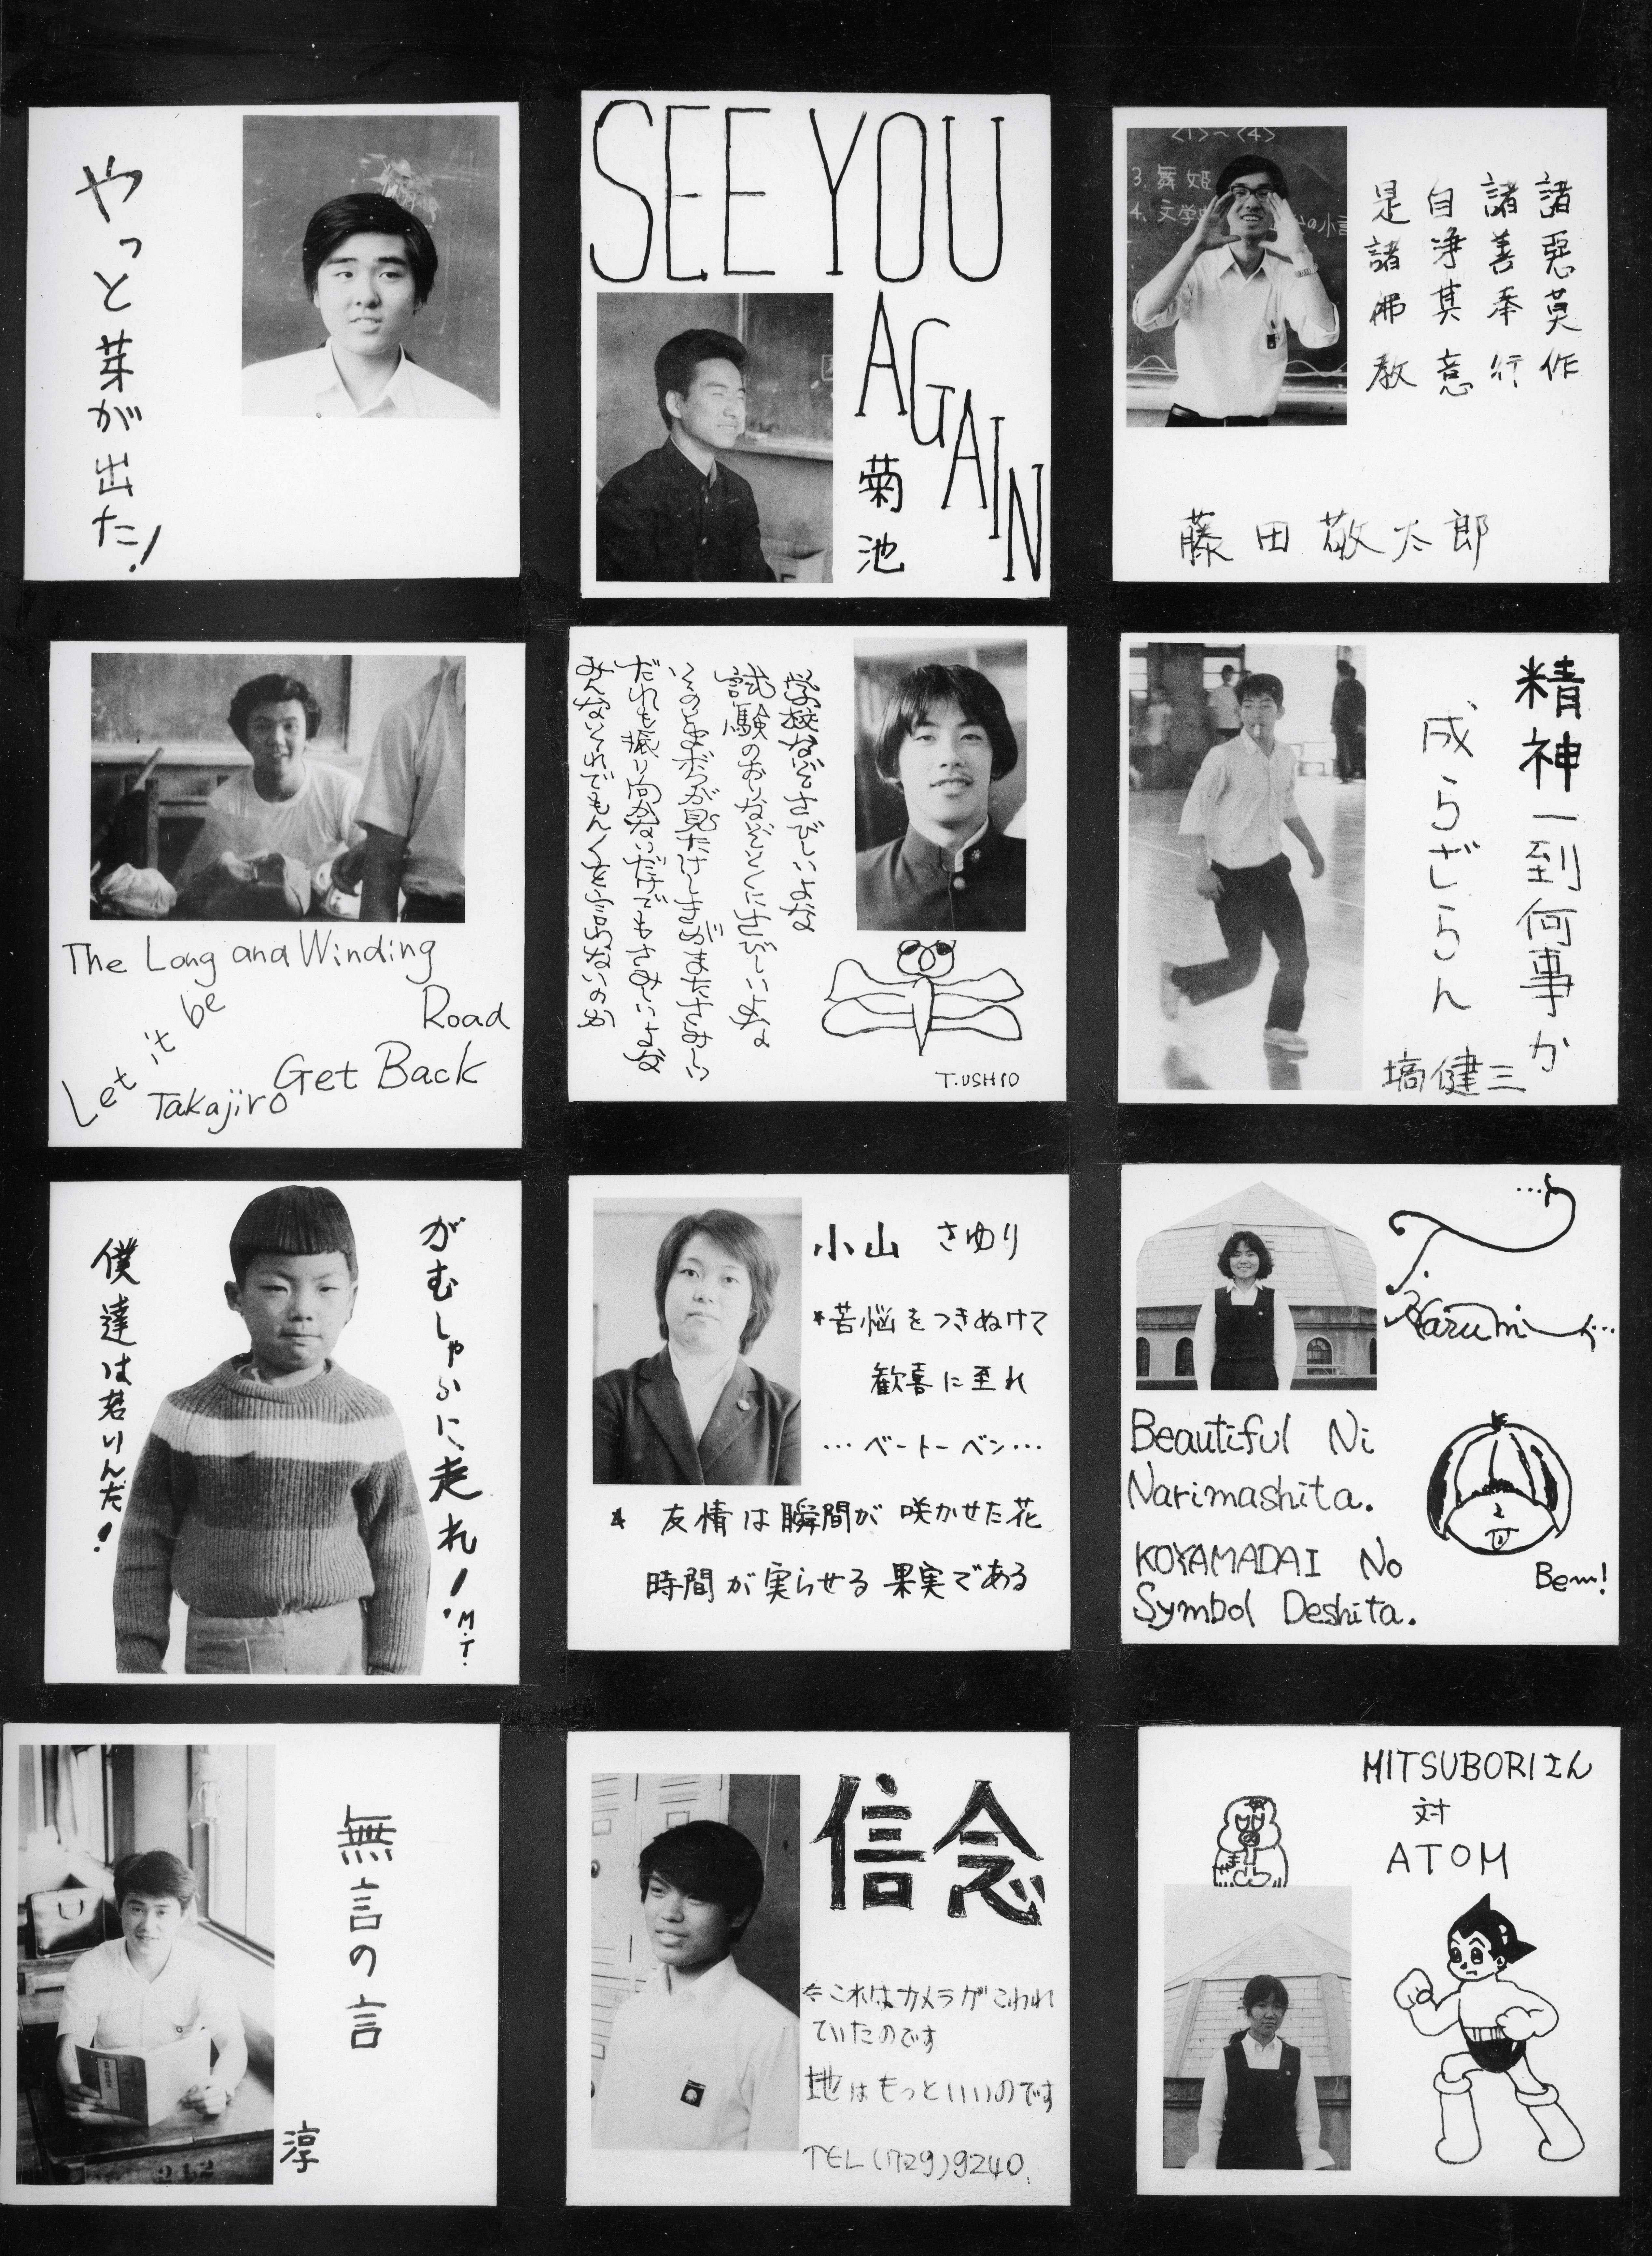 やっと芽が出た!
SEE YOU
AGAIN
菊池
<1>~<4>
3. 舞姫
4. 文学
の小
諸悪莫作
諸善奉行
自浄其意
是諸佛教
藤田敬太郎
The Long and Winding
Road
Let it be
Get Back
Takajiro
学校などさびしいよな
試験のおいなど
だれも振り向かないだけでもさみしいよな
T.USHIO
精神一到何事か
成らざらん
塙健三
がむしゃらに走れ!
M.T.
僕達は若いんだ!
小山 さゆり
*苦悩をつきぬけて
歓喜に至れ
…ベートーベン…
* 友情は瞬間が咲かせた花
時間が実らせる果実である
Harumi
Beautiful Ni
Narimashita.
KOYAMADAI No
Symbol Deshita.
Bem!
無言の言
淳
212
信念
*これはカメラがこわれ
ていたのです
地はもっといいのです
TEL(729)9240.
MITSUBORIさん
対
ATOM